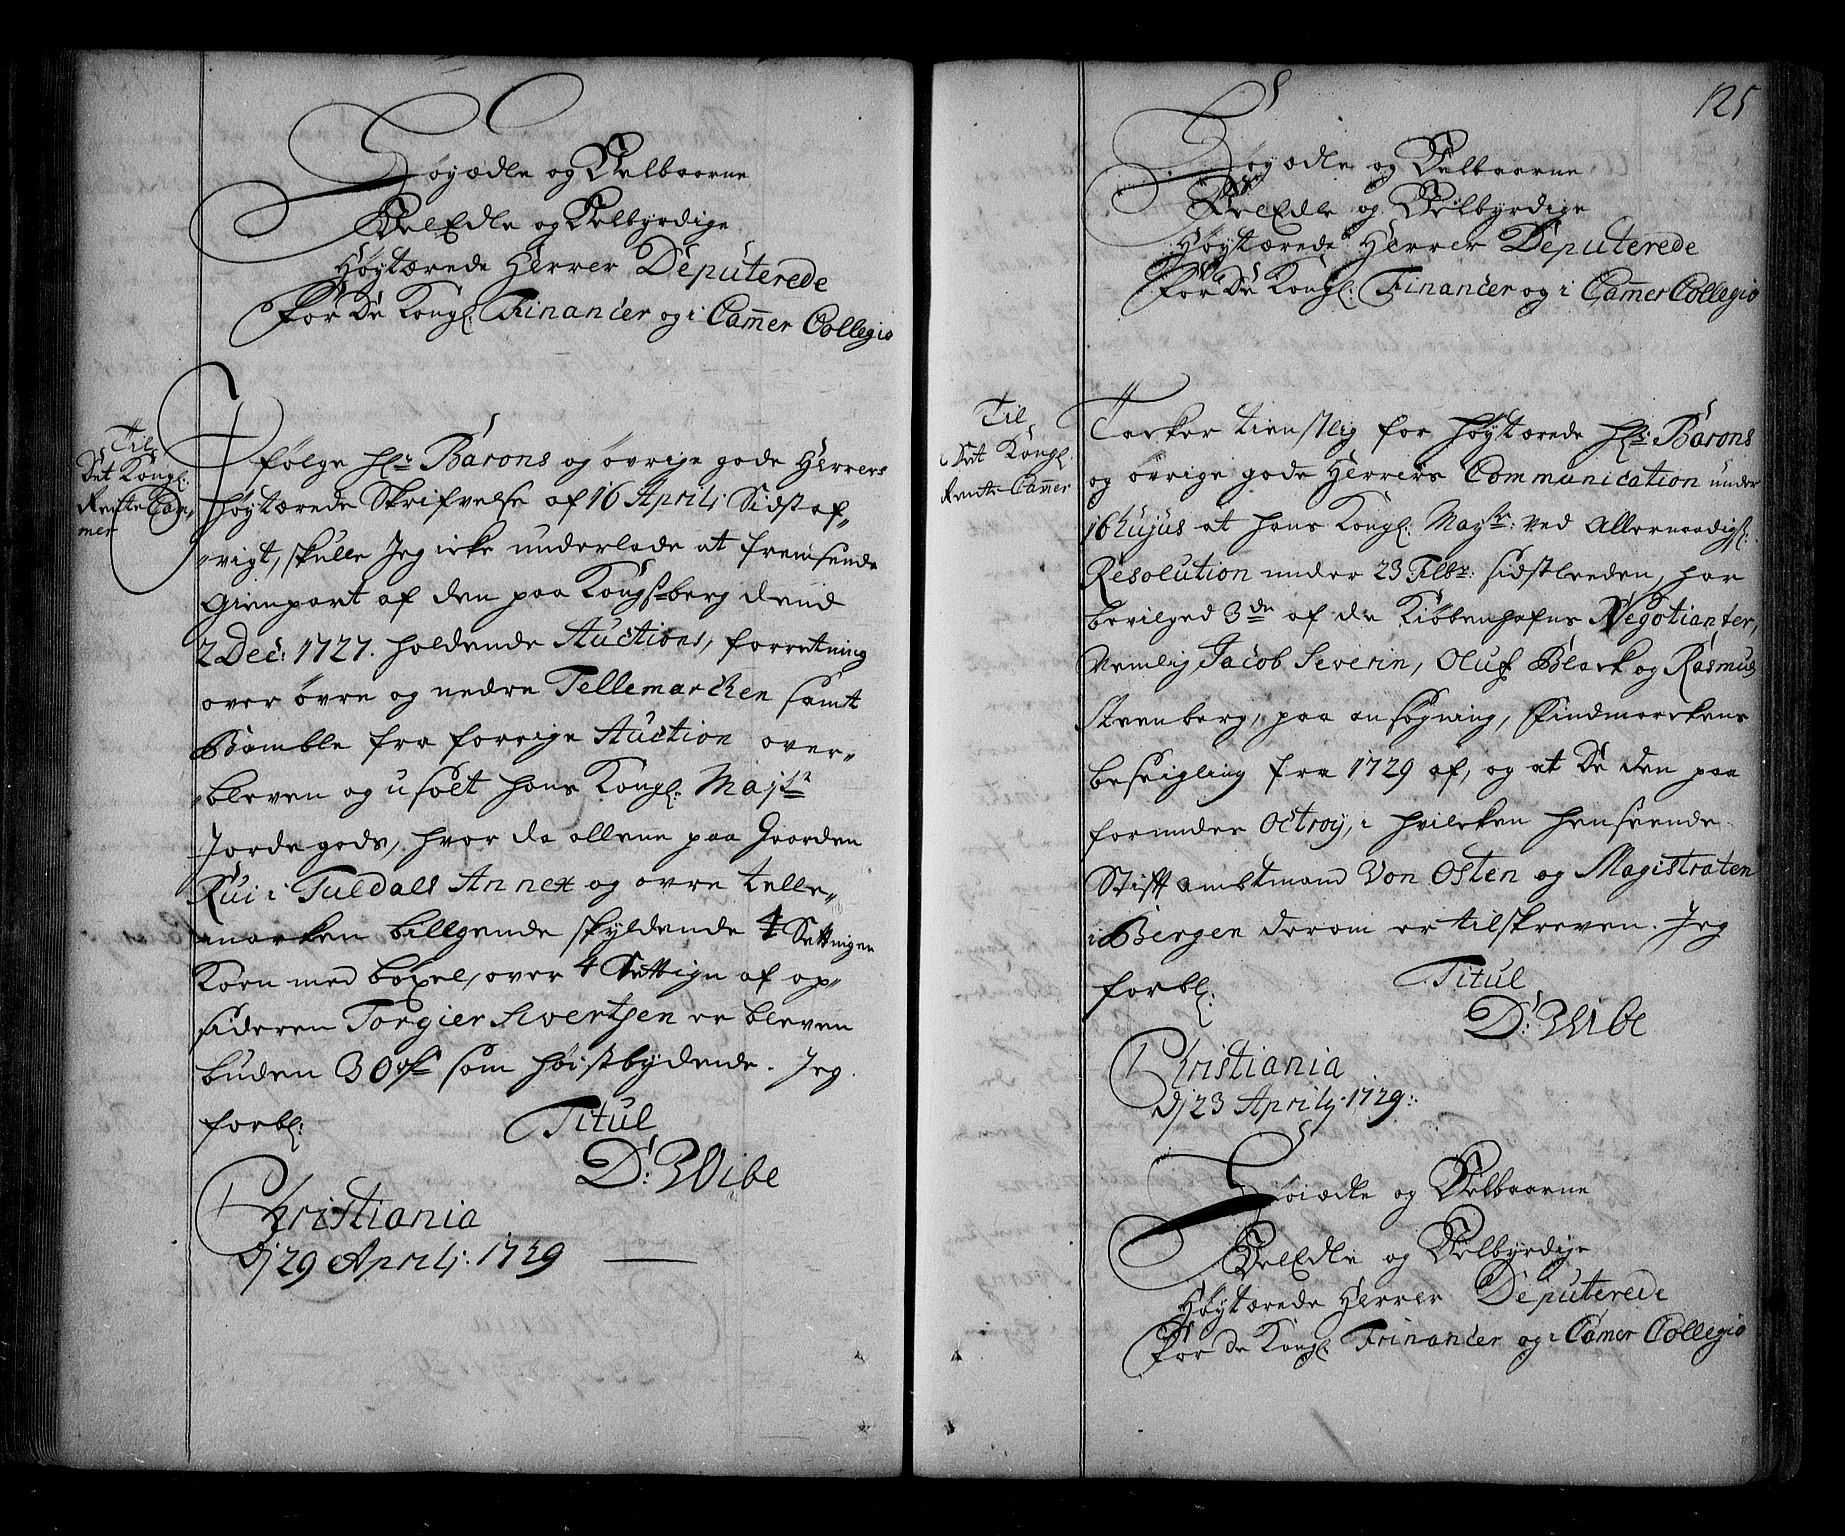 Høyædle og Velbaarne
VelEdle og Velbyrdige
Høytærede Herrer Deputerede
For De Kongl: Financer og i Cammer Collegio
Til
Det Kongl:
Rente Cam„
mer
I følge Hr: Barons og øvrige gode Herrers
høytærede Skrifvelse af 16 Aprilj Sidst af„
„vigt, skulle Jeg icke underlade at fremsende
Gienpart af den paa Kongsberg dend
2 Dec: 1727. holdende Auctions, forretning
over øvre og nedre Tellemarchen samt
Bamble fra forrige Auction over„
„bleven og usolt hans Kongl: Majts
Jordegods, hvor da allene paa Gaarden
Rui i Tuldals Annex og øvre Telle„
marken beliggende skyldende 4 Settinger
Korn med boxel, over 4 Setting af op„
sideren Torgier Sivertsen er bleven
buden 30 rdr som høistbydende. Jeg
forbl:
Titul
D: Wibe
Christiania
dj 29 Aprilj: 1729
125
Høyædle og Velbaarne
VelEdle og Velbyrdige
Høytærede Herrer Deputerede
For De Kongl: Financer og i Cammer Collegio
Til
Det Kongl:
Rente Cammer
Tacker tienstlig for høytærede Hr: Barons
og øvrige gode Herrers Communication under
16 hujus at hans Kongl: Mayts: ved Allernaadigst:
Resolution under 23 Febr: sidstleeden, har
bevilged 3de af de Kiøbenhafns Negotianter,
Nemlig Jacob Severin, Oluf Blach og Rasmus
Steenberg, paa ansøgning, Findmarckens
beseigling fra 1729 af, og at De den paa
forunder Octroy, i hvilcken henseende
Stiftamtmand Von Osten og Magistraten
i Bergen derom er tilskreven. Jeg
forbl:
Titul
D: Wibe
Christiania
dj 23 Aprilj: 1729:
Høiædle og Velbaarne
VelEdle og Velbyrdige
Høytærede Herrer Deputerede
For de Kongl: Financer og i Camer Collegio